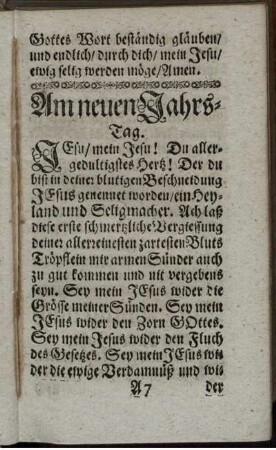 Gottes Wort beständig gläuben/
und endlich/durch dich/mein Jesu/
ewig selig werden möge/Amen.
Am neuen Jahrs-
Tag.
JEsu/mein Jesu! Du aller-
gedultigstes Hertz! Der du
bist in deiner blutigen Beschneidung
JEsus genennet worden/ein Hey-
land und Seligmacher. Ach laß
diese erste schmertzliche Vergiessung
deiner allerreinesten zartesten Bluts
Tröpflein mir armen Sünder auch
zu gut kommen und nit vergebens
seyn. Sey mein JEsus wider die
Grösse meiner Sünden. Sey mein
JEsus wider den Zorn GOttes.
Sey mein Jesus wider den Fluch
des Gesetzes. Sey mein JEsus wi-
der die ewige Verdamnüß und wi-
A7 der